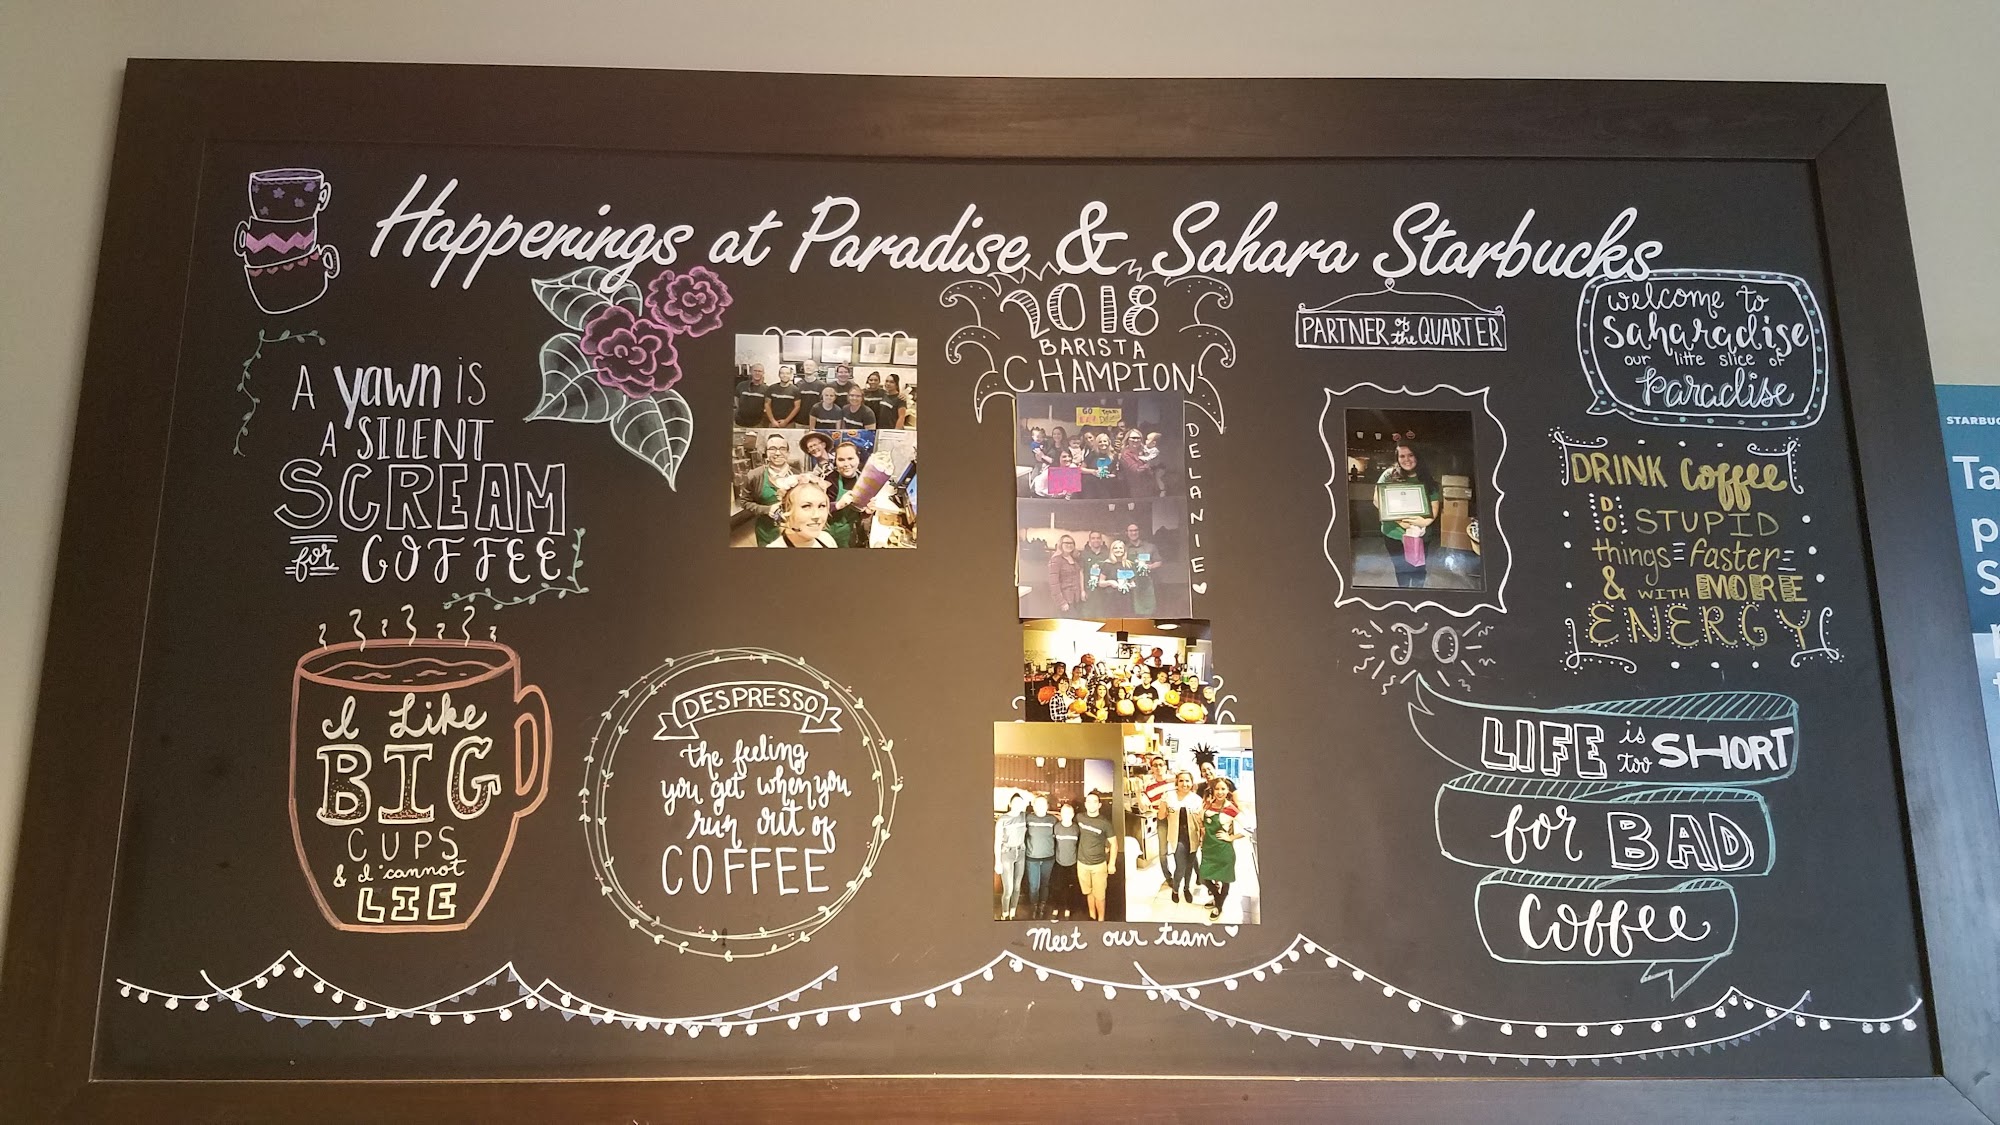 Happenings at Paradise & Sahara Starbucks
A yawn is
A SILENT
SCREAM
for COFFEE
I Like
BIG
CUPS
& I cannot
LIE
DESPRESSO
the feeling
you get when you
run out of
COFFEE
2018
BARISTA
CHAMPION
DELANIE
Meet our team
PARTNER of the QUARTER
JO
welcome to
Saharadise
our little slice of
paradise
DRINK Coffee
DO STUPID
things faster
& WITH MORE
ENERGY
LIFE is too SHORT
for BAD
Coffee
STARBUC
Ta
p
S